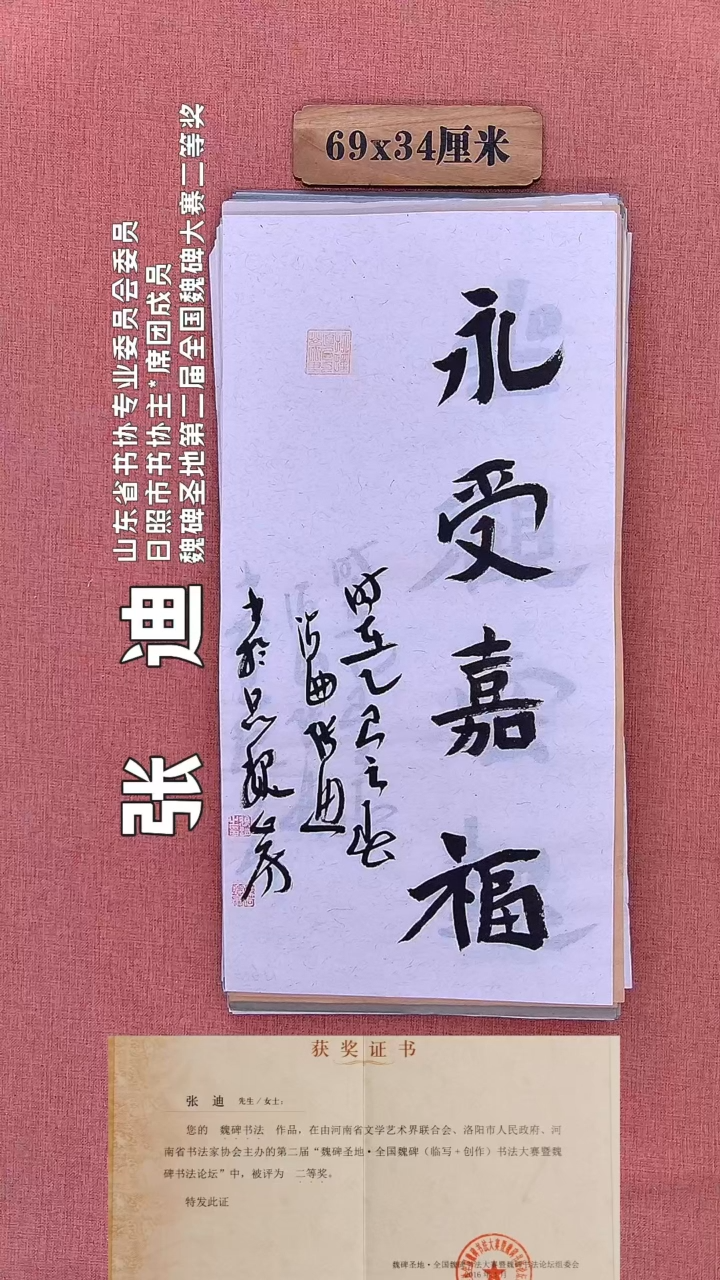 69x34厘米
山东省书协专业委员会委员
日照市书协主*席团成员
魏碑圣地第二届全国魏碑大赛二等奖
张 迪
永受嘉福
时在乙巳之春
张迪
书于
获奖证书
张 迪 先生/女士:
您的 魏碑书法 作品，在由河南省文学艺术界联合会、洛阳市人民政府、河
南省书法家协会主办的第二届“魏碑圣地·全国魏碑（临写+创作）书法大赛暨魏
碑书法论坛”中，被评为 二等奖。
特发此证
魏碑圣地·全国魏碑书法大赛暨魏碑书法论坛组委会